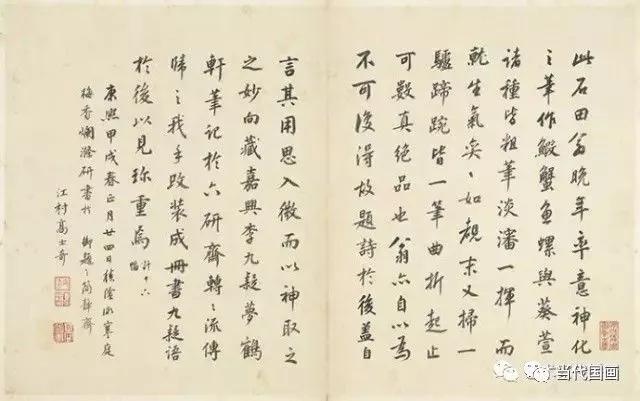 此石田翁晚年率意神化
之筆作鰕蟹魚螺與葵萱
諸種皆粗筆淡瀋一揮而
就生氣奕〻如覩末又掃一
驢蹄踠皆一筆曲折起止
可數真絕品也翁亦自以為
不可復得故題詩於後蓋自
言其用思入微而以神取之
之妙向藏嘉興李九疑夢鶴
軒筆記於六研齋轉〻流傳
歸之我手改裝成冊書九疑語
於後以見珍重焉 計十六幅
康熙甲戌春正月廿四日積陰寒庭
梅香爛滌研書於 御題之簡靜齋
江村高士奇
当代国画